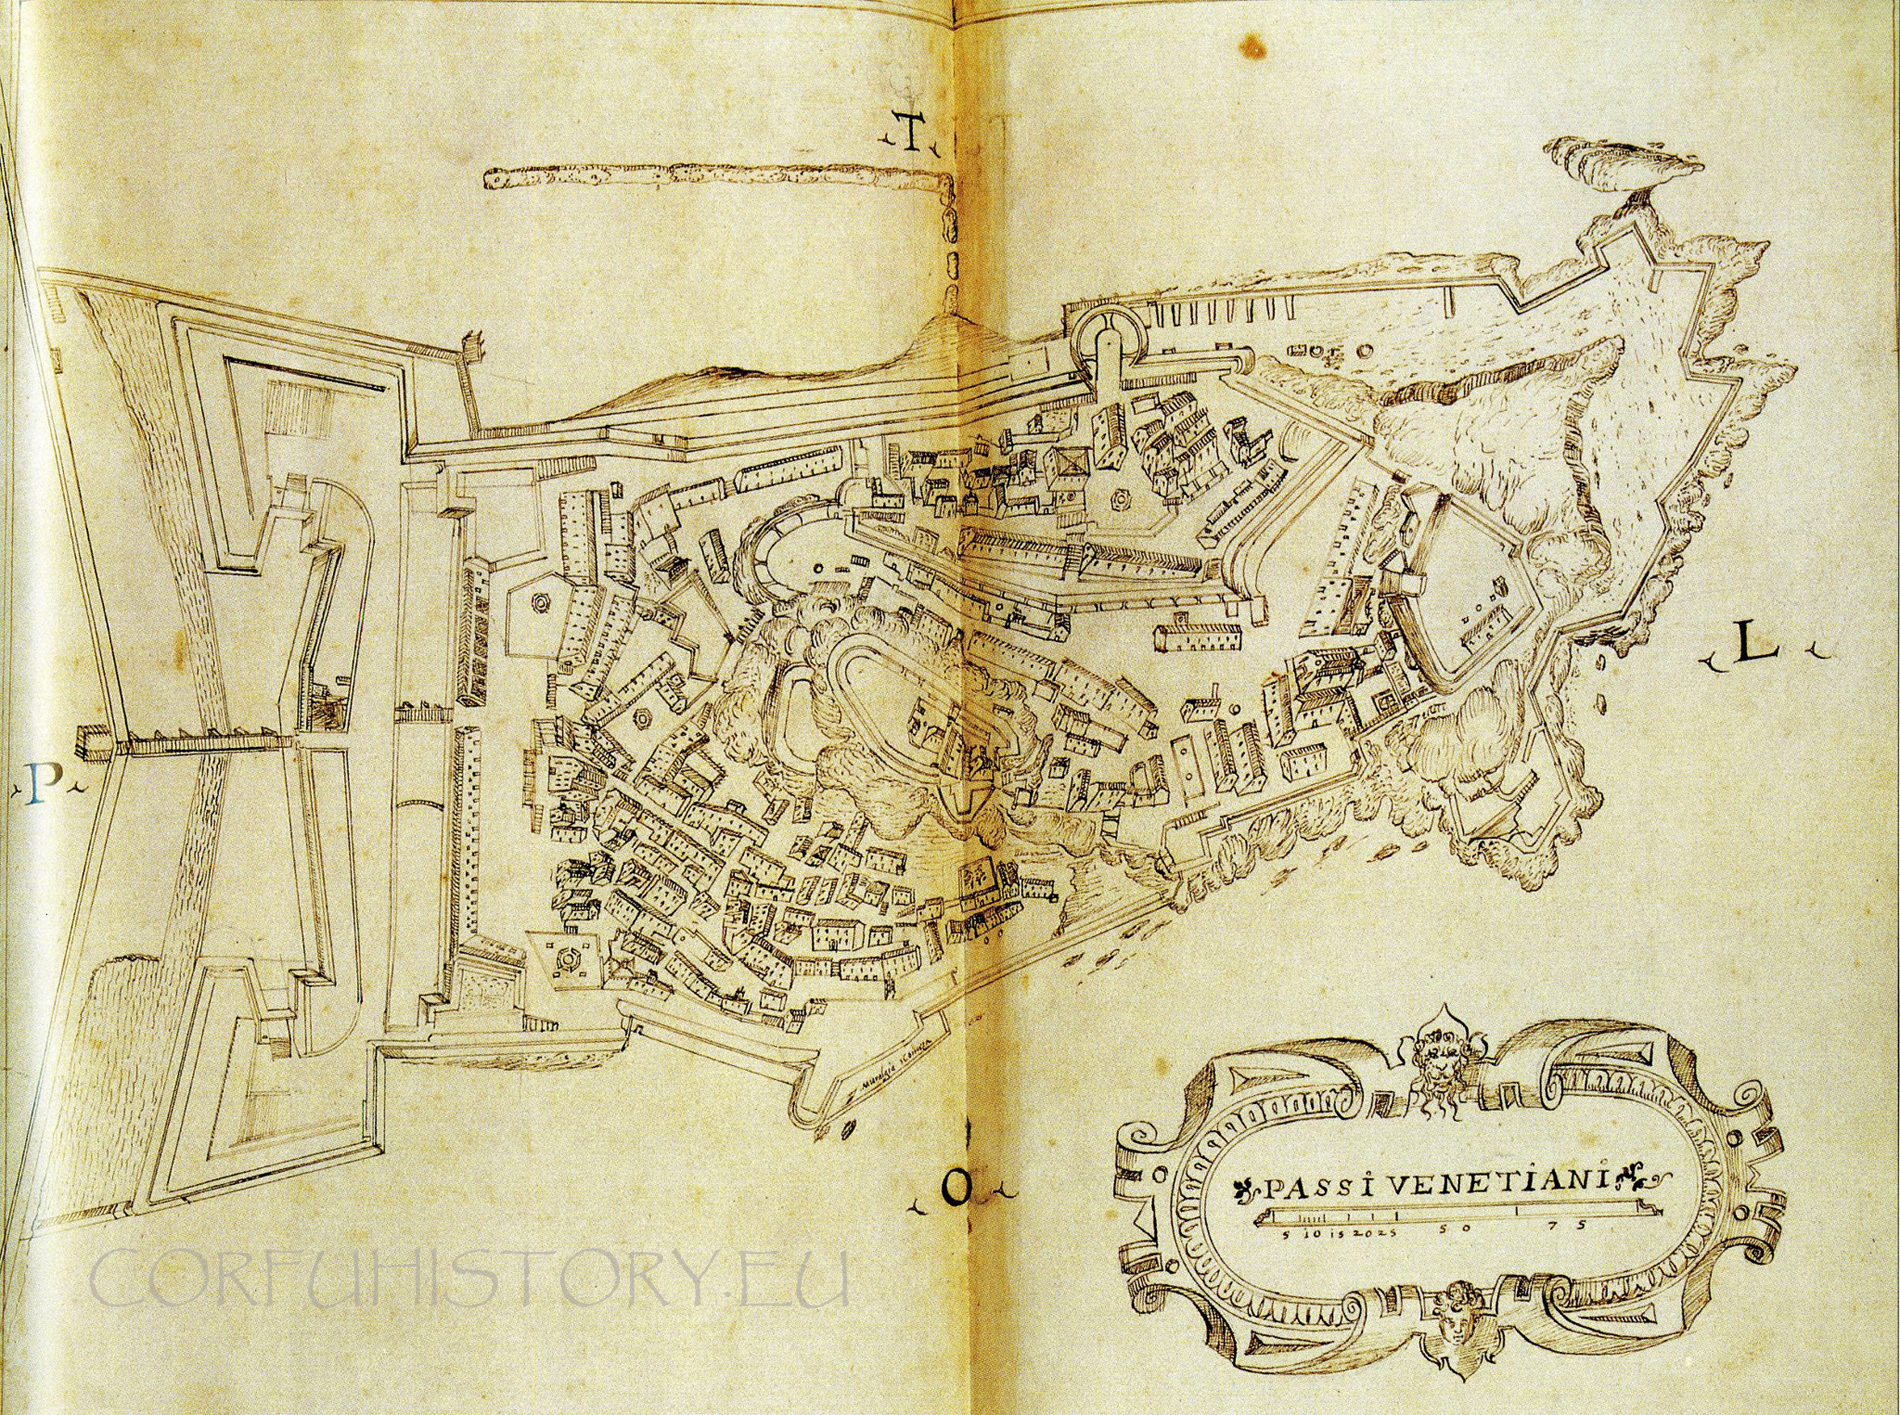 T
L
P
O
PASSI VENETIANI
5 10 15 20 25 50 75
CORFUHISTORY.EU